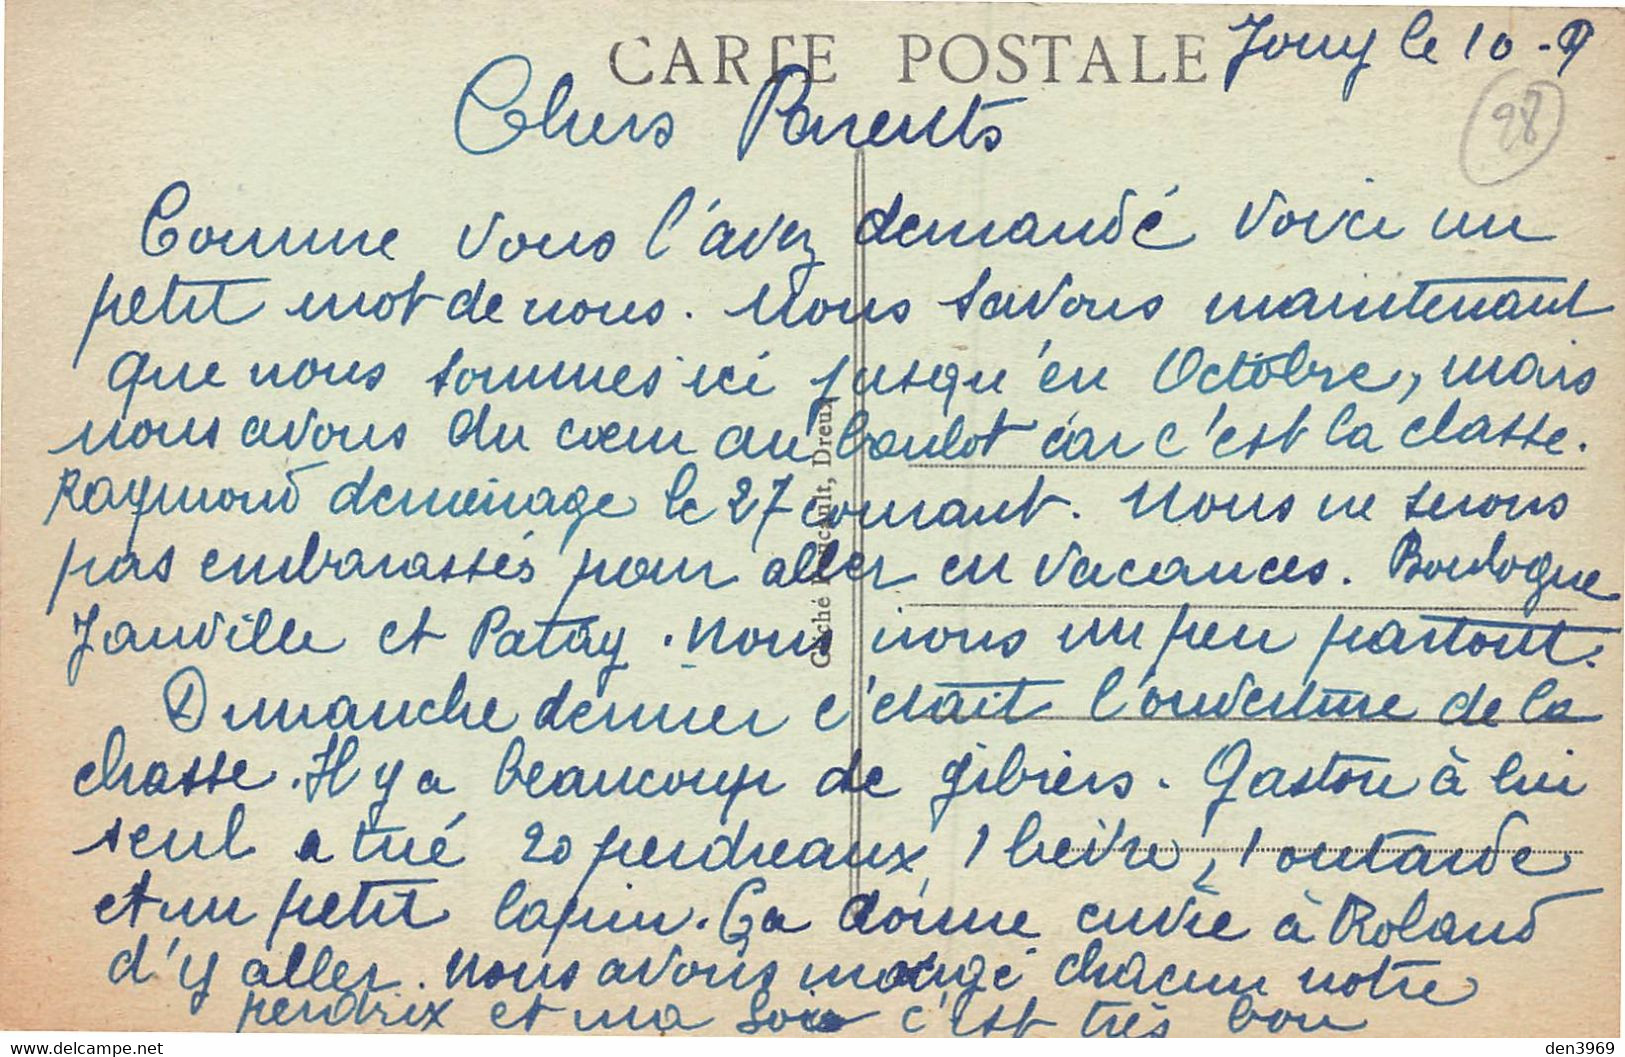 CARTE POSTALE
Jouy le 10-9
28
Chers Parents
Comme vous l'avez demandé voici un
petit mot de nous. Nous savons maintenant
que nous sommes ici jusqu'en Octobre, mais
nous avons du cœur au boulot car c'est la classe.
Raymond deménage le 27 courant. Nous ne serons
pas embarassés pour aller en vacances. Boulogne
Janville et Patay. Nous irons un peu partout.
Dimanche dernier c'était l'ouverture de la
chasse. Il y a beaucoup de gibiers. Gaston à lui
seul a tué 20 perdreaux, 1 lièvre, 1 outarde
et un petit lapin. Ça donne envie à Roland
d'y aller. Nous avons mangé chacun notre
perdrix et ma foi c'est très bon
Cliché Foucault, Dreux
Delcampe.net
den3969